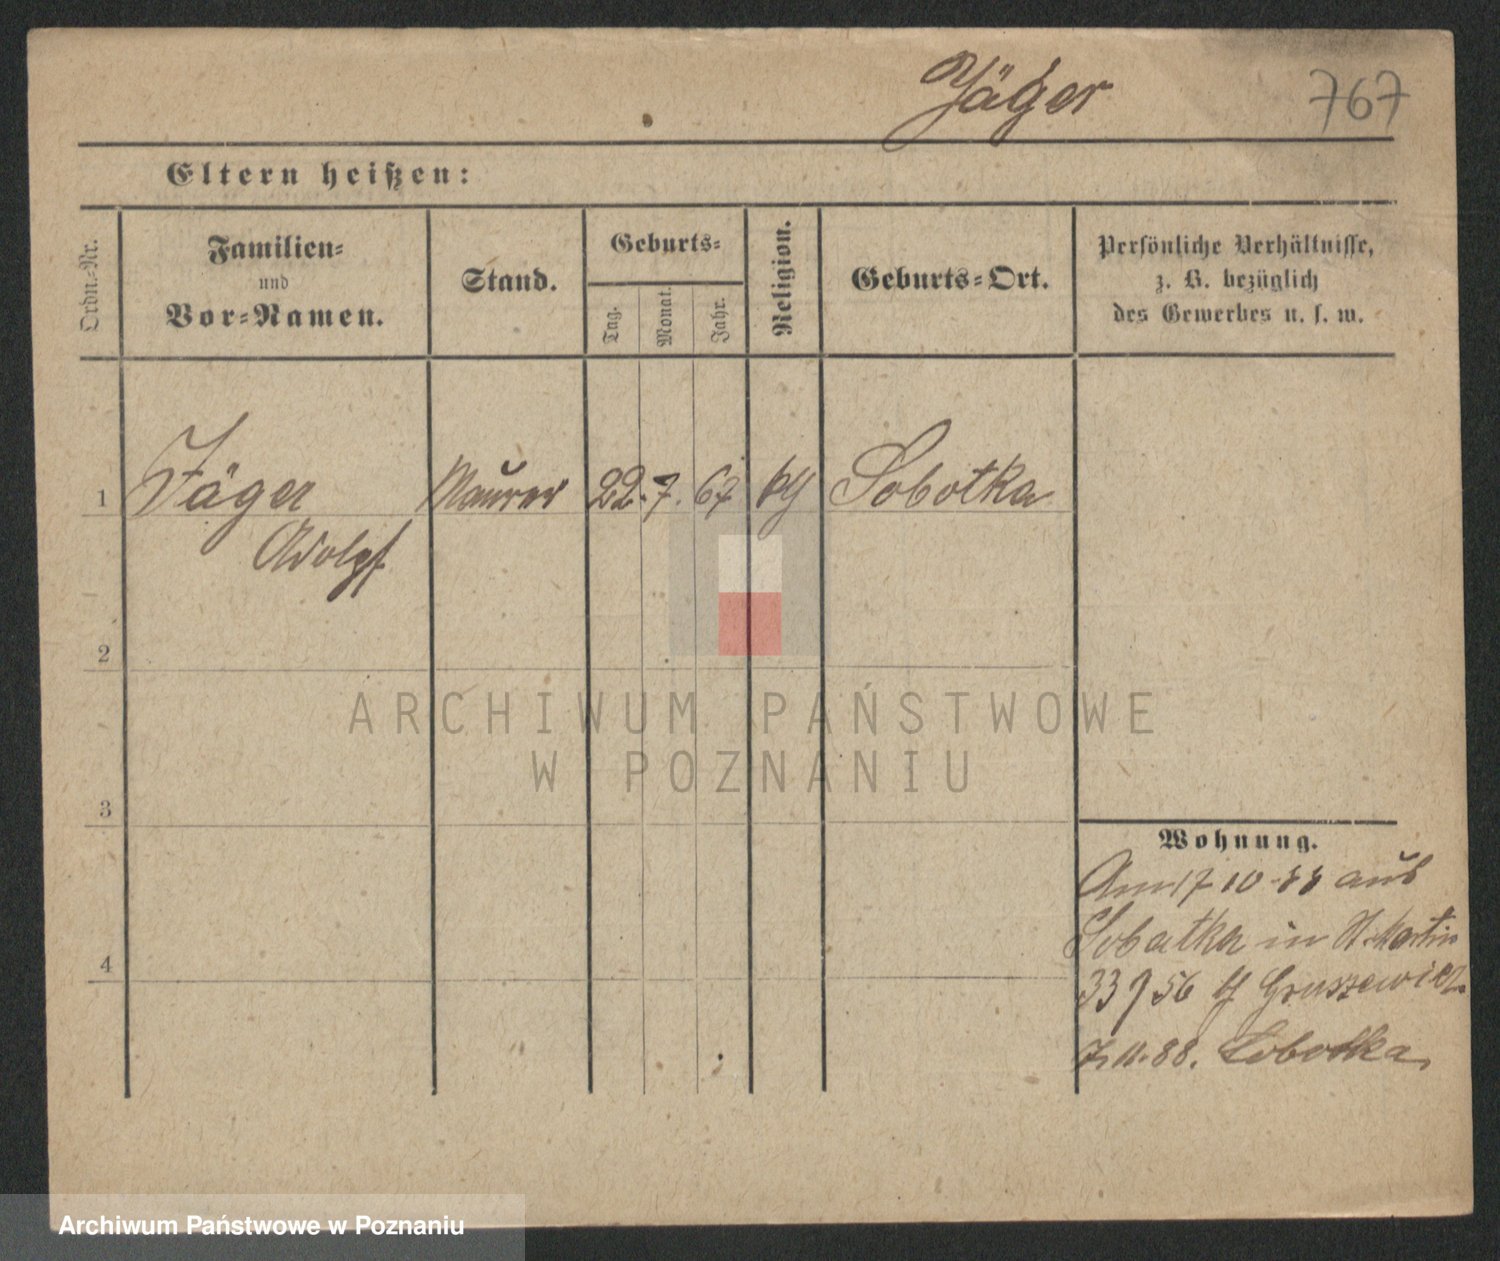 Jäger 767
Eltern heißen:
Ordn.-Nr.
Familien-
und
Vor-Namen.
Stand.
Geburts-
Tag.
Monat.
Jahr.
Religion.
Geburts-Ort.
Persönliche Verhältnisse,
z. B. bezüglich
des Gewerbes u. s. w.
1 Jäger Maurer 22. 7. 67 Sobotka
Adolf
2
3
4
Wohnung.
Am 17 10 88 aus
Sobotka in St. Martin
33 56 Gruszewicz
7. 11. 88. Sobotka
ARCHIWUM PAŃSTWOWE
W POZNANIU
Archiwum Państwowe w Poznaniu